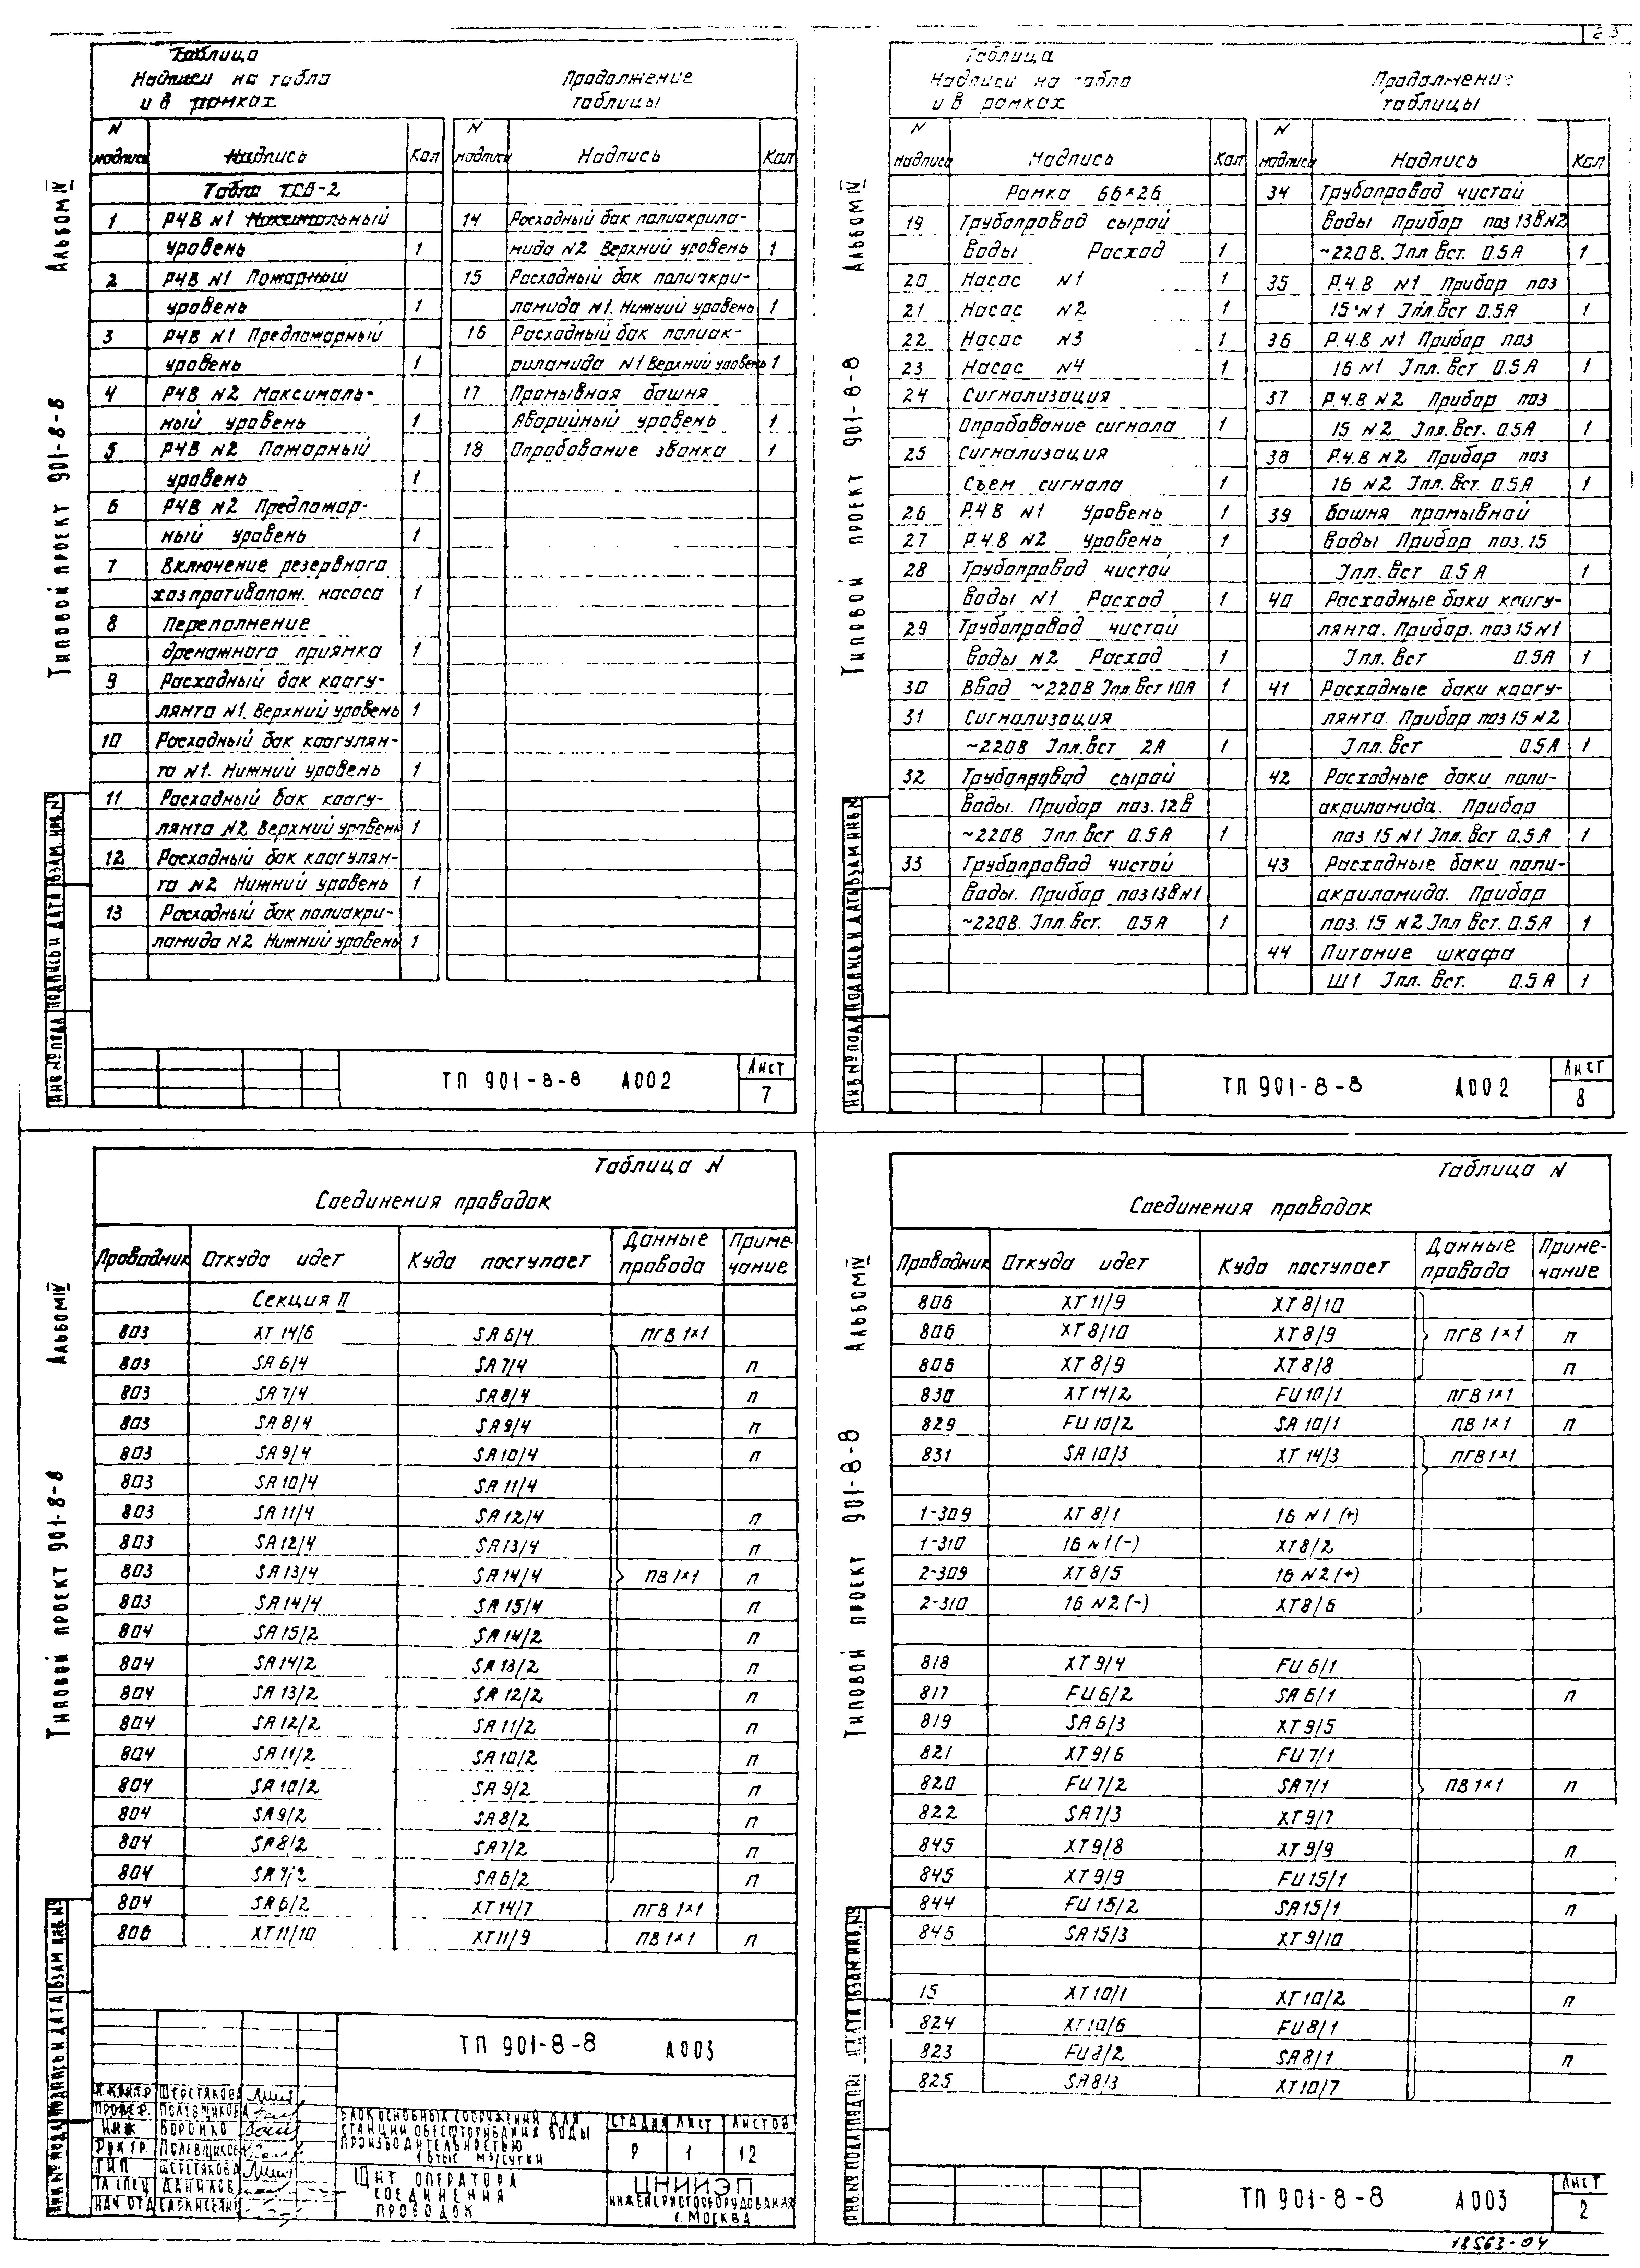 23
Таблица
Надписи на табло
и в рамках
Продолжение
таблицы
N надписи Надпись Кол
N надписи Надпись Кол
Табло ТСВ-2
1 РЧВ N1 Максимальный
уровень 1
2 РЧВ N1 Пожарный
уровень 1
3 РЧВ N1 Предпожарный
уровень 1
4 РЧВ N2 Максималь-
ный уровень 1
5 РЧВ N2 Пожарный
уровень 1
6 РЧВ N2 Предпожар-
ный уровень 1
7 Включение резервного
хозпротивопож. насоса 1
8 Переполнение
дренажного приямка 1
9 Расходный бак коагу-
лянта N1. Верхний уровень 1
10 Расходный бак коагулян-
та N1. Нижний уровень 1
11 Расходный бак коагу-
лянта N2 Верхний уровень 1
12 Расходный бак коагулян-
та N2 Нижний уровень 1
13 Расходный бак полиакри-
ламида N2 Нижний уровень 1
14 Расходный бак полиакрила-
мида N2 Верхний уровень 1
15 Расходный бак полиакри-
ламида N1. Нижний уровень 1
16 Расходный бак полиак-
риламида N1 Верхний уровень 1
17 Промывная башня
Аварийный уровень 1
18 Опробование звонка 1
Альбом IV
Типовой проект 901-8-8
Инв.№ подл Подпись и дата Взам.инв.№
ТП 901-8-8 А002
Лист
7
Таблица
Надписи на табло
и в рамках
Продолжение
таблицы
N надписи Надпись Кол
N надписи Надпись Кол
Рамка 66×26
19 Трубопровод сырой
воды Расход 1
20 Насос N1 1
21 Насос N2 1
22 Насос N3 1
23 Насос N4 1
24 Сигнализация
Опробование сигнала 1
25 Сигнализация
Съем сигнала 1
26 Р.Ч.В N1 Уровень 1
27 Р.Ч.В N2 Уровень 1
28 Трубопровод чистой
воды N1 Расход 1
29 Трубопровод чистой
воды N2 Расход 1
30 Ввод ~220В Iпл.Вст 10А 1
31 Сигнализация
~220В Iпл.Вст 2А 1
32 Трубопровод сырой
воды. Прибор поз.12в
~220В Iпл.Вст 0.5А 1
33 Трубопровод чистой
воды. Прибор поз 13в N1
~220В. Iпл.Вст. 0.5А 1
34 Трубопровод чистой
воды Прибор поз 13в N2
~220В. Iпл.Вст. 0.5А 1
35 Р.Ч.В N1 Прибор поз
15 N1 Iпл.Вст 0.5А 1
36 Р.Ч.В N1 Прибор поз
16 N1 Iпл.Вст 0.5А 1
37 Р.Ч.В N2 Прибор поз
15 N2 Iпл.Вст. 0.5А 1
38 Р.Ч.В N2 Прибор поз
16 N2 Iпл.Вст. 0.5А 1
39 Башня промывной
воды Прибор поз.15
Iпл.Вст 0.5А 1
40 Расходные баки коагу-
лянта. Прибор. поз 15 N1
Iпл.Вст 0.5А 1
41 Расходные баки коагу-
лянта. Прибор поз 15 N2
Iпл.Вст 0.5А 1
42 Расходные баки поли-
акриламида. Прибор
поз 15 N1 Iпл.Вст. 0.5А 1
43 Расходные баки поли-
акриламида. Прибор
поз. 15 N2 Iпл.Вст. 0.5А 1
44 Питание шкафа
Ш1 Iпл.Вст. 0.5А 1
Альбом IV
Типовой проект 901-8-8
Инв.№ подл Подпись и дата Взам инв.№
ТП 901-8-8 А002
Лист
8
Таблица N
Соединения проводок
Проводник Откуда идет Куда поступает Данные провода Примечание
Секция II
803 XT 14/6 SA 6/4 ПГВ 1×1
803 SA 6/4 SA 7/4 п
803 SA 7/4 SA 8/4 п
803 SA 8/4 SA 9/4 п
803 SA 9/4 SA 10/4 п
803 SA 10/4 SA 11/4
803 SA 11/4 SA 12/4 п
803 SA 12/4 SA 13/4 п
803 SA 13/4 SA 14/4 ПВ 1×1 п
803 SA 14/4 SA 15/4 п
804 SA 15/2 SA 14/2 п
804 SA 14/2 SA 13/2 п
804 SA 13/2 SA 12/2 п
804 SA 12/2 SA 11/2 п
804 SA 11/2 SA 10/2 п
804 SA 10/2 SA 9/2 п
804 SA 9/2 SA 8/2 п
804 SA 8/2 SA 7/2 п
804 SA 7/2 SA 6/2 п
804 SA 6/2 XT 14/7 ПГВ 1×1
806 XT 11/10 XT 11/9 ПВ 1×1 п
Альбом IV
Типовой проект 901-8-8
Инв.№ подл Подпись и дата Взам инв.№
ТП 901-8-8 А003
Н.контр Шерстякова
Провер. Полевщикова
Инж Воронко
Рук гр Полевщикова
ГИП Шерстякова
Гл спец Данилов
Нач отд
Блок основных сооружений для
станции обесфторивания воды
производительностью
16 тыс м³/сутки
Стадия Лист Листов
Р 1 12
Щит оператора
Соединения
проводок
ЦНИИЭП
инженерного оборудования
г. Москва
Таблица N
Соединения проводок
Проводник Откуда идет Куда поступает Данные провода Примечание
806 XT 11/9 XT 8/10
806 XT 8/10 XT 8/9 ПГВ 1×1 п
806 XT 8/9 XT 8/8 п
830 XT 14/2 FU 10/1 ПГВ 1×1
829 FU 10/2 SA 10/1 ПВ 1×1 п
831 SA 10/3 XT 14/3 ПГВ 1×1
1-309 XT 8/1 16 N1 (+)
1-310 16 N1 (-) XT 8/2
2-309 XT 8/5 16 N2 (+)
2-310 16 N2 (-) XT 8/6
818 XT 9/4 FU 6/1
817 FU 6/2 SA 6/1 п
819 SA 6/3 XT 9/5
821 XT 9/6 FU 7/1
820 FU 7/2 SA 7/1 ПВ 1×1 п
822 SA 7/3 XT 9/7
845 XT 9/8 XT 9/9 п
845 XT 9/9 FU 15/1
844 FU 15/2 SA 15/1 п
846 SA 15/3 XT 9/10
15 XT 10/1 XT 10/2 п
824 XT 10/6 FU 8/1
823 FU 8/2 SA 8/1 п
825 SA 8/3 XT 10/7
Альбом IV
Типовой проект 901-8-8
ТП 901-8-8 А003
Лист
2
18563-04